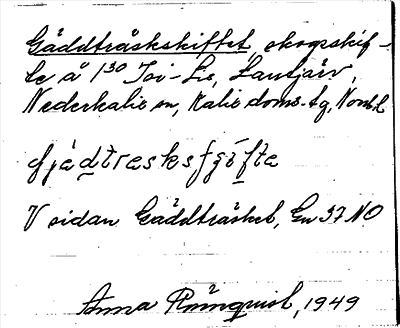 Gäddträskskiftet, skogsskif-
te å 1³⁰ Toi-Le, Lantjärv,
Nederkalix sn, Kalix doms.-tg, Norrb.l.
V sidan Gäddträsket, En 37 NO
Anna Rönquist, 1949